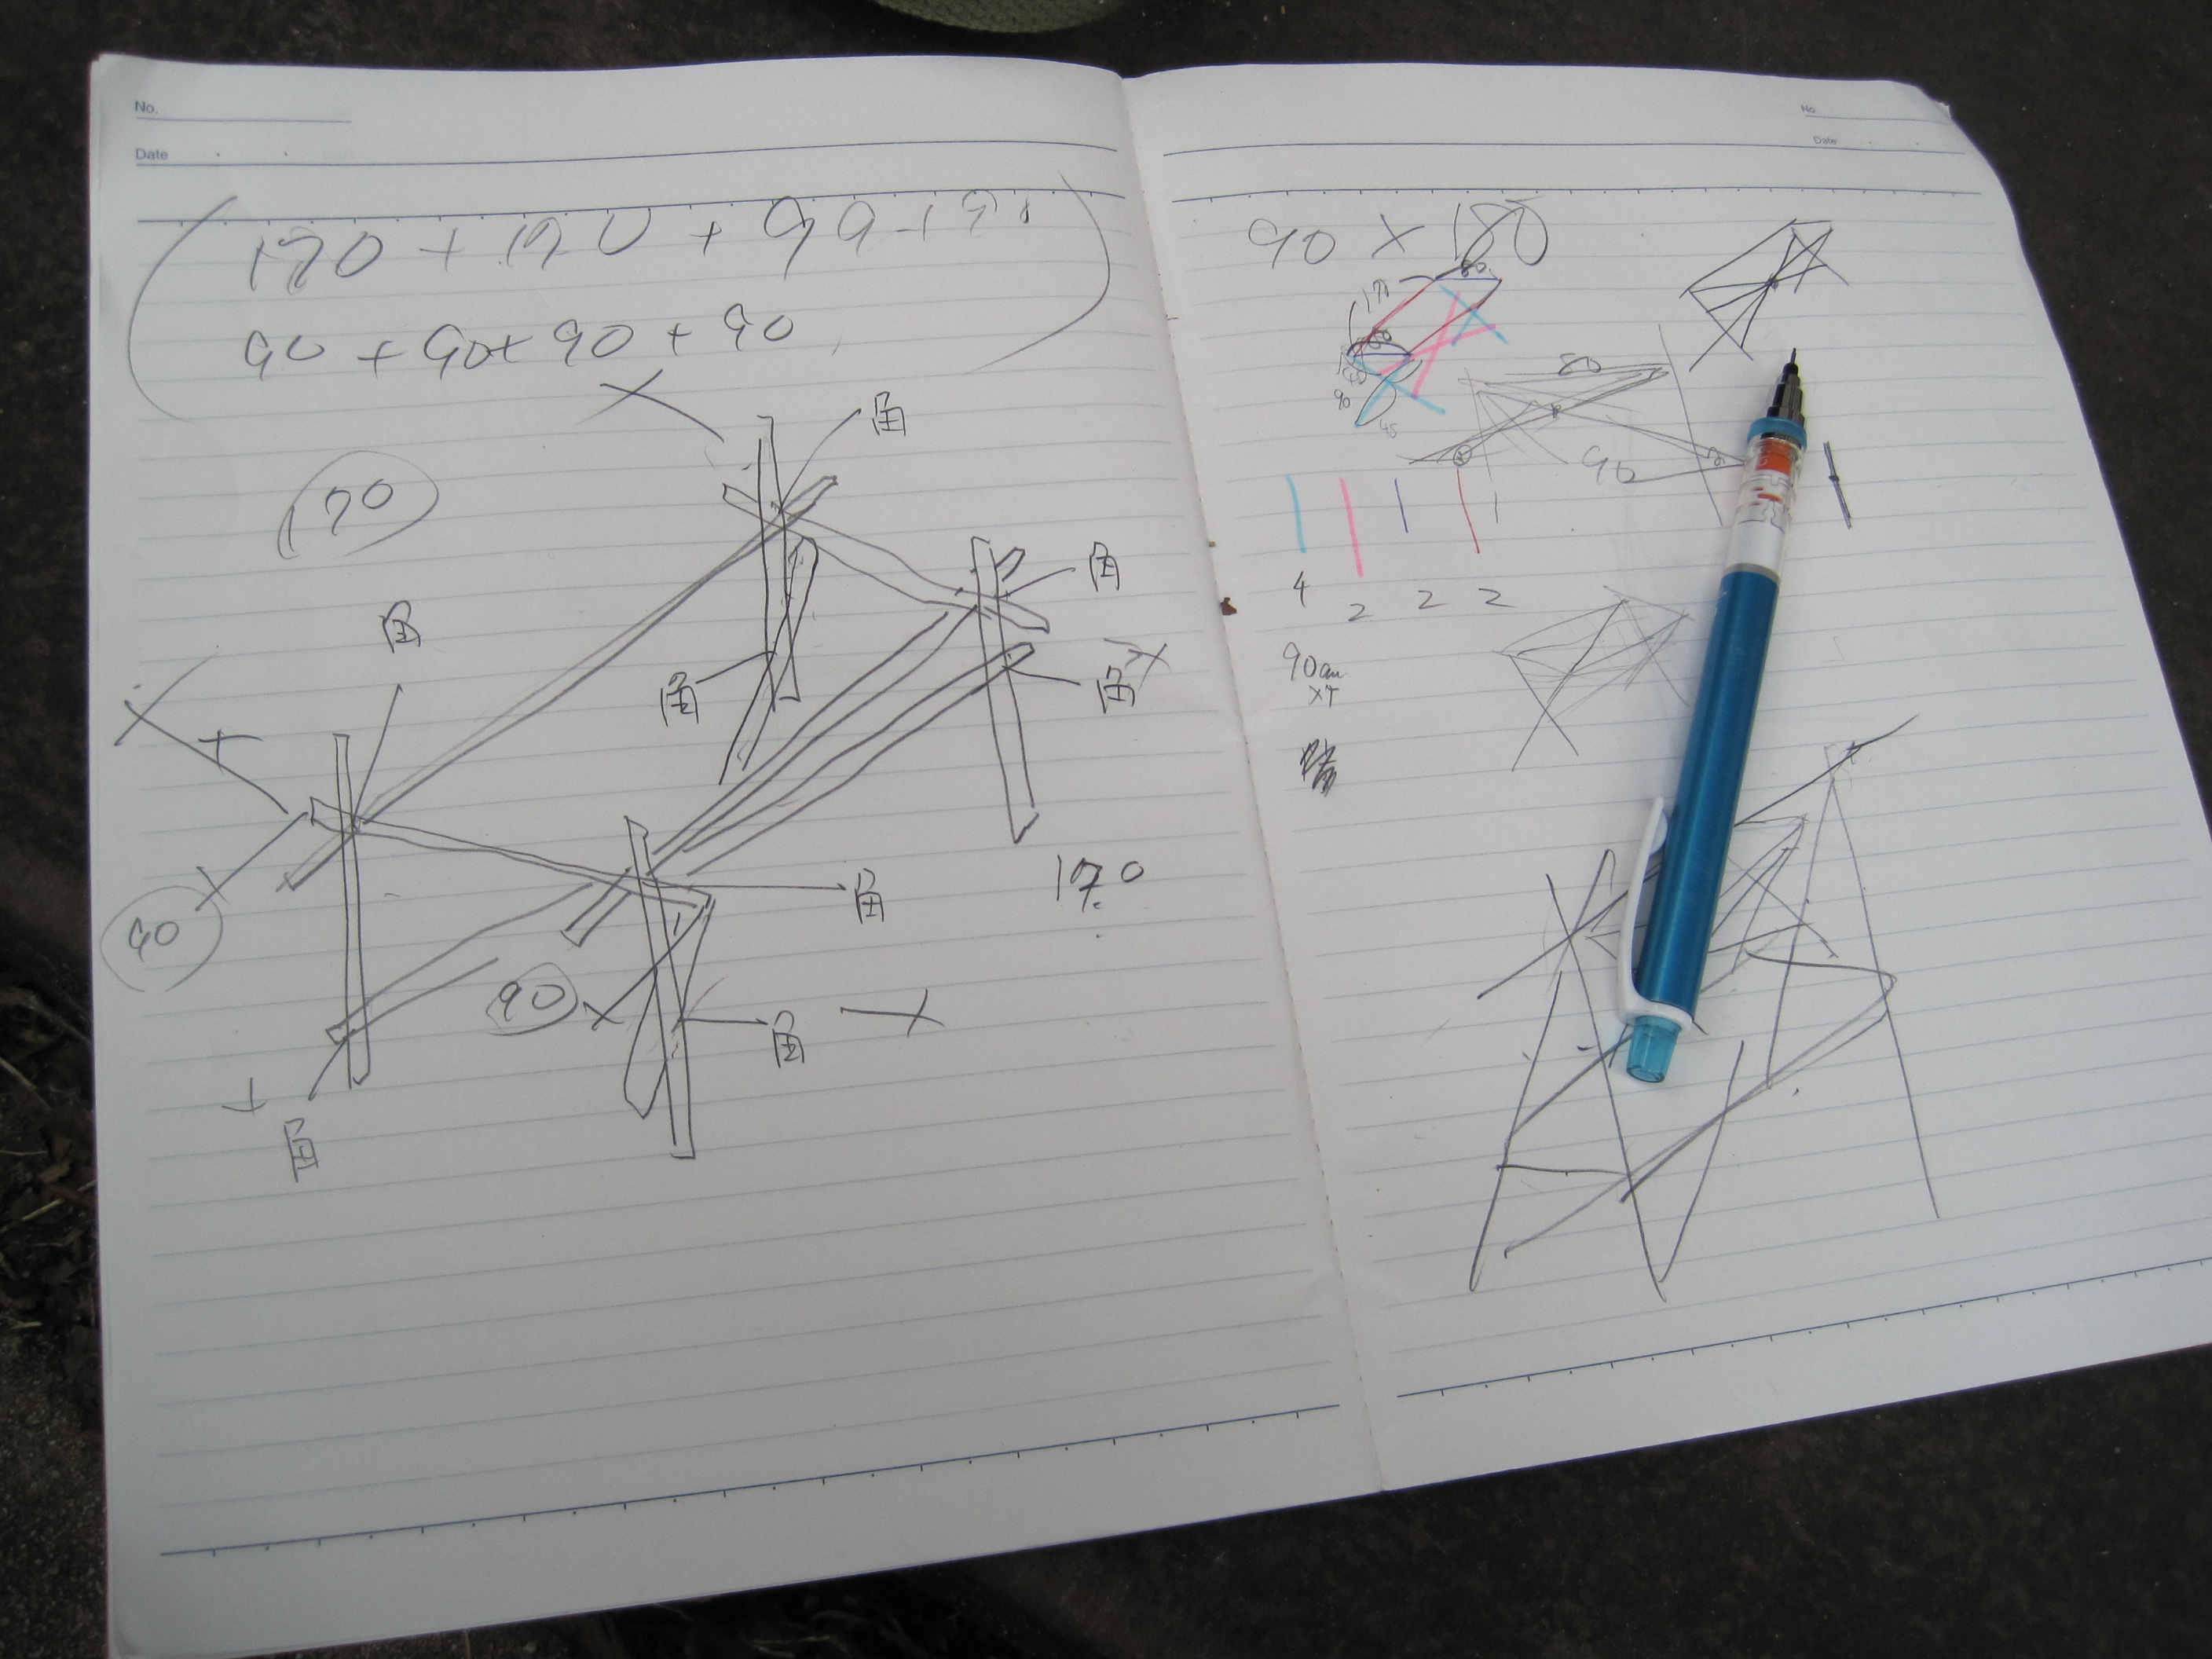 No.
Date
170 + 170 + 90 +
90 + 90 + 90 + 90
角
170
角
角
角
角
角
90
170
90
角
角
No
Date
90 × 180
80
80
90
4 2 2 2
90cm